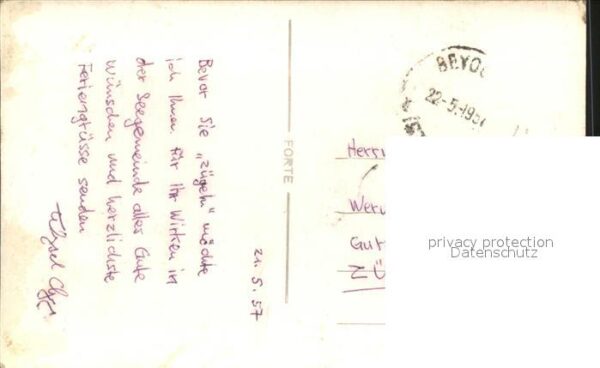 21. 5. 57
Bevor Sie "zügeln" möchte
ich Ihnen für Ihr Wirken in
der Seegemeinde alles Gute
wünschen und herzlichste
Feriengrüsse senden
FORTE
BEYOĞ
22-5-195
Herrn
Wern
Gut
privacy protection
Datenschutz